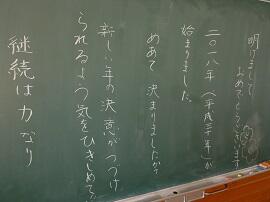 明けまして
おめでとうございます
二〇一八年(平成三十年)が
始まりました。
めあて 決まりましたか?
新しい年の決意がつづけ
られるよう気をひきしめて
継続は力なり